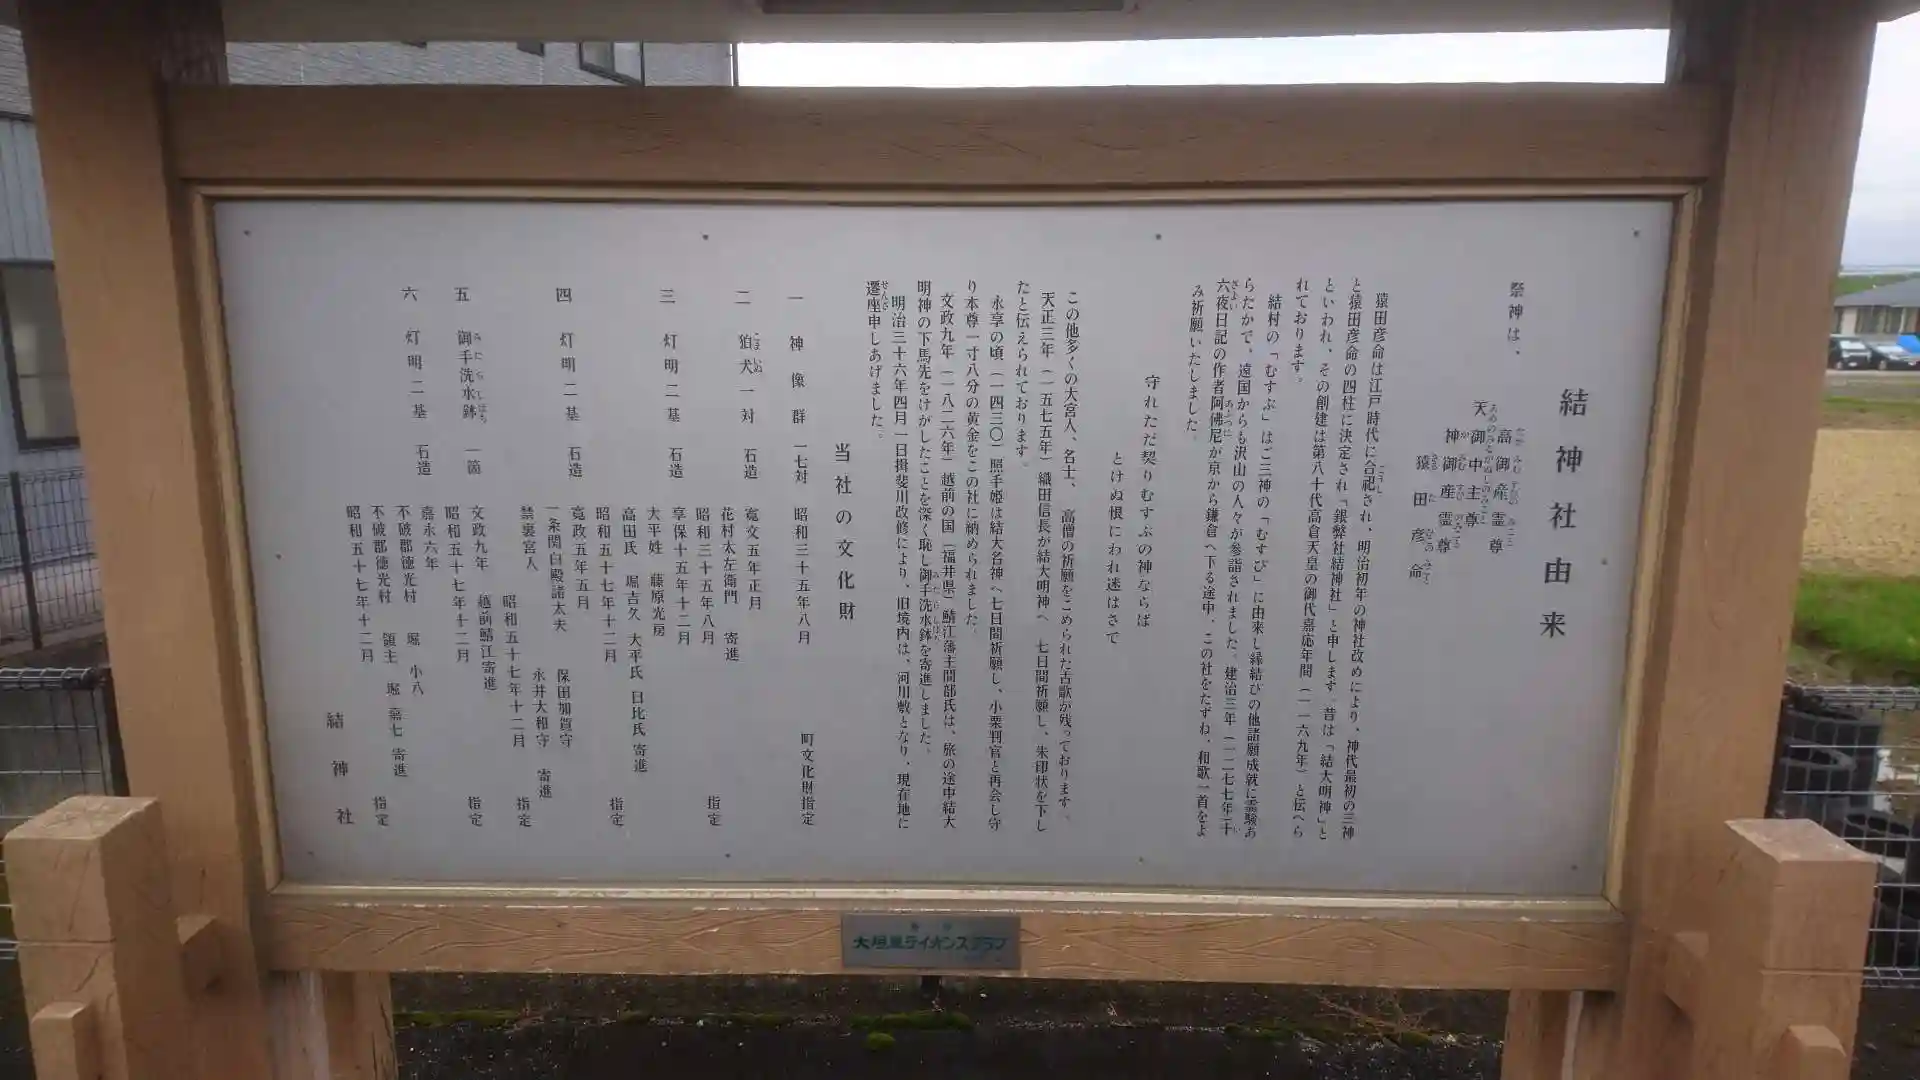 結神社由来
祭神は、
高御産霊尊
天御中主尊
神御産霊尊
猿田彦命
猿田彦命は江戸時代に合祀され、明治初年の神社改めにより、神代最初の三神
と猿田彦命の四柱に決定され「銀弊社結神社」と申します。昔は「結大明神」と
といわれ、その創建は第八十代高倉天皇の御代嘉応年間(一一六九年)と伝へら
れております。
結村の「むすぶ」はご三神の「むすび」に由来し縁結びの他諸願成就に霊験あ
らたかで、遠国からも沢山の人々が参詣されました。建治三年(一二七七年)十
六夜日記の作者阿佛尼が京から鎌倉へ下る途中、この社をたずね、和歌一首をよ
み祈願いたしました。
守れただ契りむすぶの神ならば
とけぬ恨にわれ迷はさで
この他多くの大宮人、名士、高僧の祈願をこめられた古歌が残っております。
天正三年(一五七五年)織田信長が結大明神へ七日間祈願し、朱印状を下し
たと伝えられております。
永享の頃(一四三〇)照手姫は結大名神へ七日間祈願し、小栗判官と再会し守
り本尊一寸八分の黄金をこの社に納められました。
文政九年(一八二六年)越前の国(福井県)鯖江藩主間部氏は、旅の途中結大
明神の下馬先をけがしたことを深く恥し御手洗水鉢を寄進しました。
明治三十六年四月一日揖斐川改修により、旧境内は、河川敷となり、現在地に
遷座申しあげました。
当社の文化財
一 神像群 一七対 昭和三十五年八月 町文化財指定
二 狛犬一対 石造 寛文五年正月
花村太左衛門 寄進
昭和三十五年八月 指定
三 灯明二基 石造 享保十五年十二月
大平姓 藤原光房
高田氏 堀吉久 大平氏 日比氏 寄進
昭和五十七年十二月 指定
四 灯明二基 石造 寛政五年五月
一条関白殿諸太夫 保田加賀守
永井大和守 寄進
禁裏宮人 昭和五十七年十二月 指定
五 御手洗水鉢 一箇 文政九年 越前鯖江寄進
昭和五十七年十二月 指定
六 灯明二基 石造 嘉永六年
不破郡徳光村 堀 小八
不破郡徳光村 領主 堀 嘉七 寄進
昭和五十七年十二月 指定
結神社
大垣東ライオンズクラブ